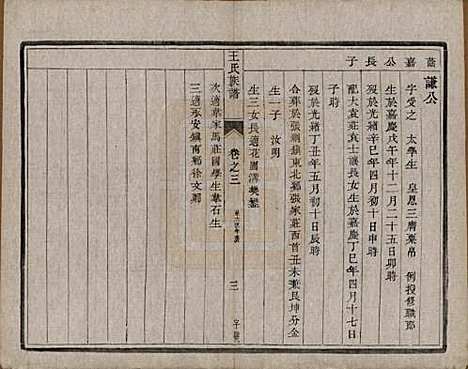 嘉公長子
謙公
字受之 太學生 皇恩三膺粟帛 例授修職郎
生於嘉慶戊午年十二月二十五日卯時
歿於光緒辛巳年四月初十日申時
配大袁莊袁士 長女生於嘉慶丁巳年四月十七日
子時
歿於光緒丁丑年五月初十日辰時
合葬於張 鎮東北鄉張家莊西首丑未兼艮坤分金
生一子 汝明
生三女長適花園溝樊
王氏族譜
卷之三
三
次適葉家馬莊國學生葉石生
三適永安鎮南鄉徐文